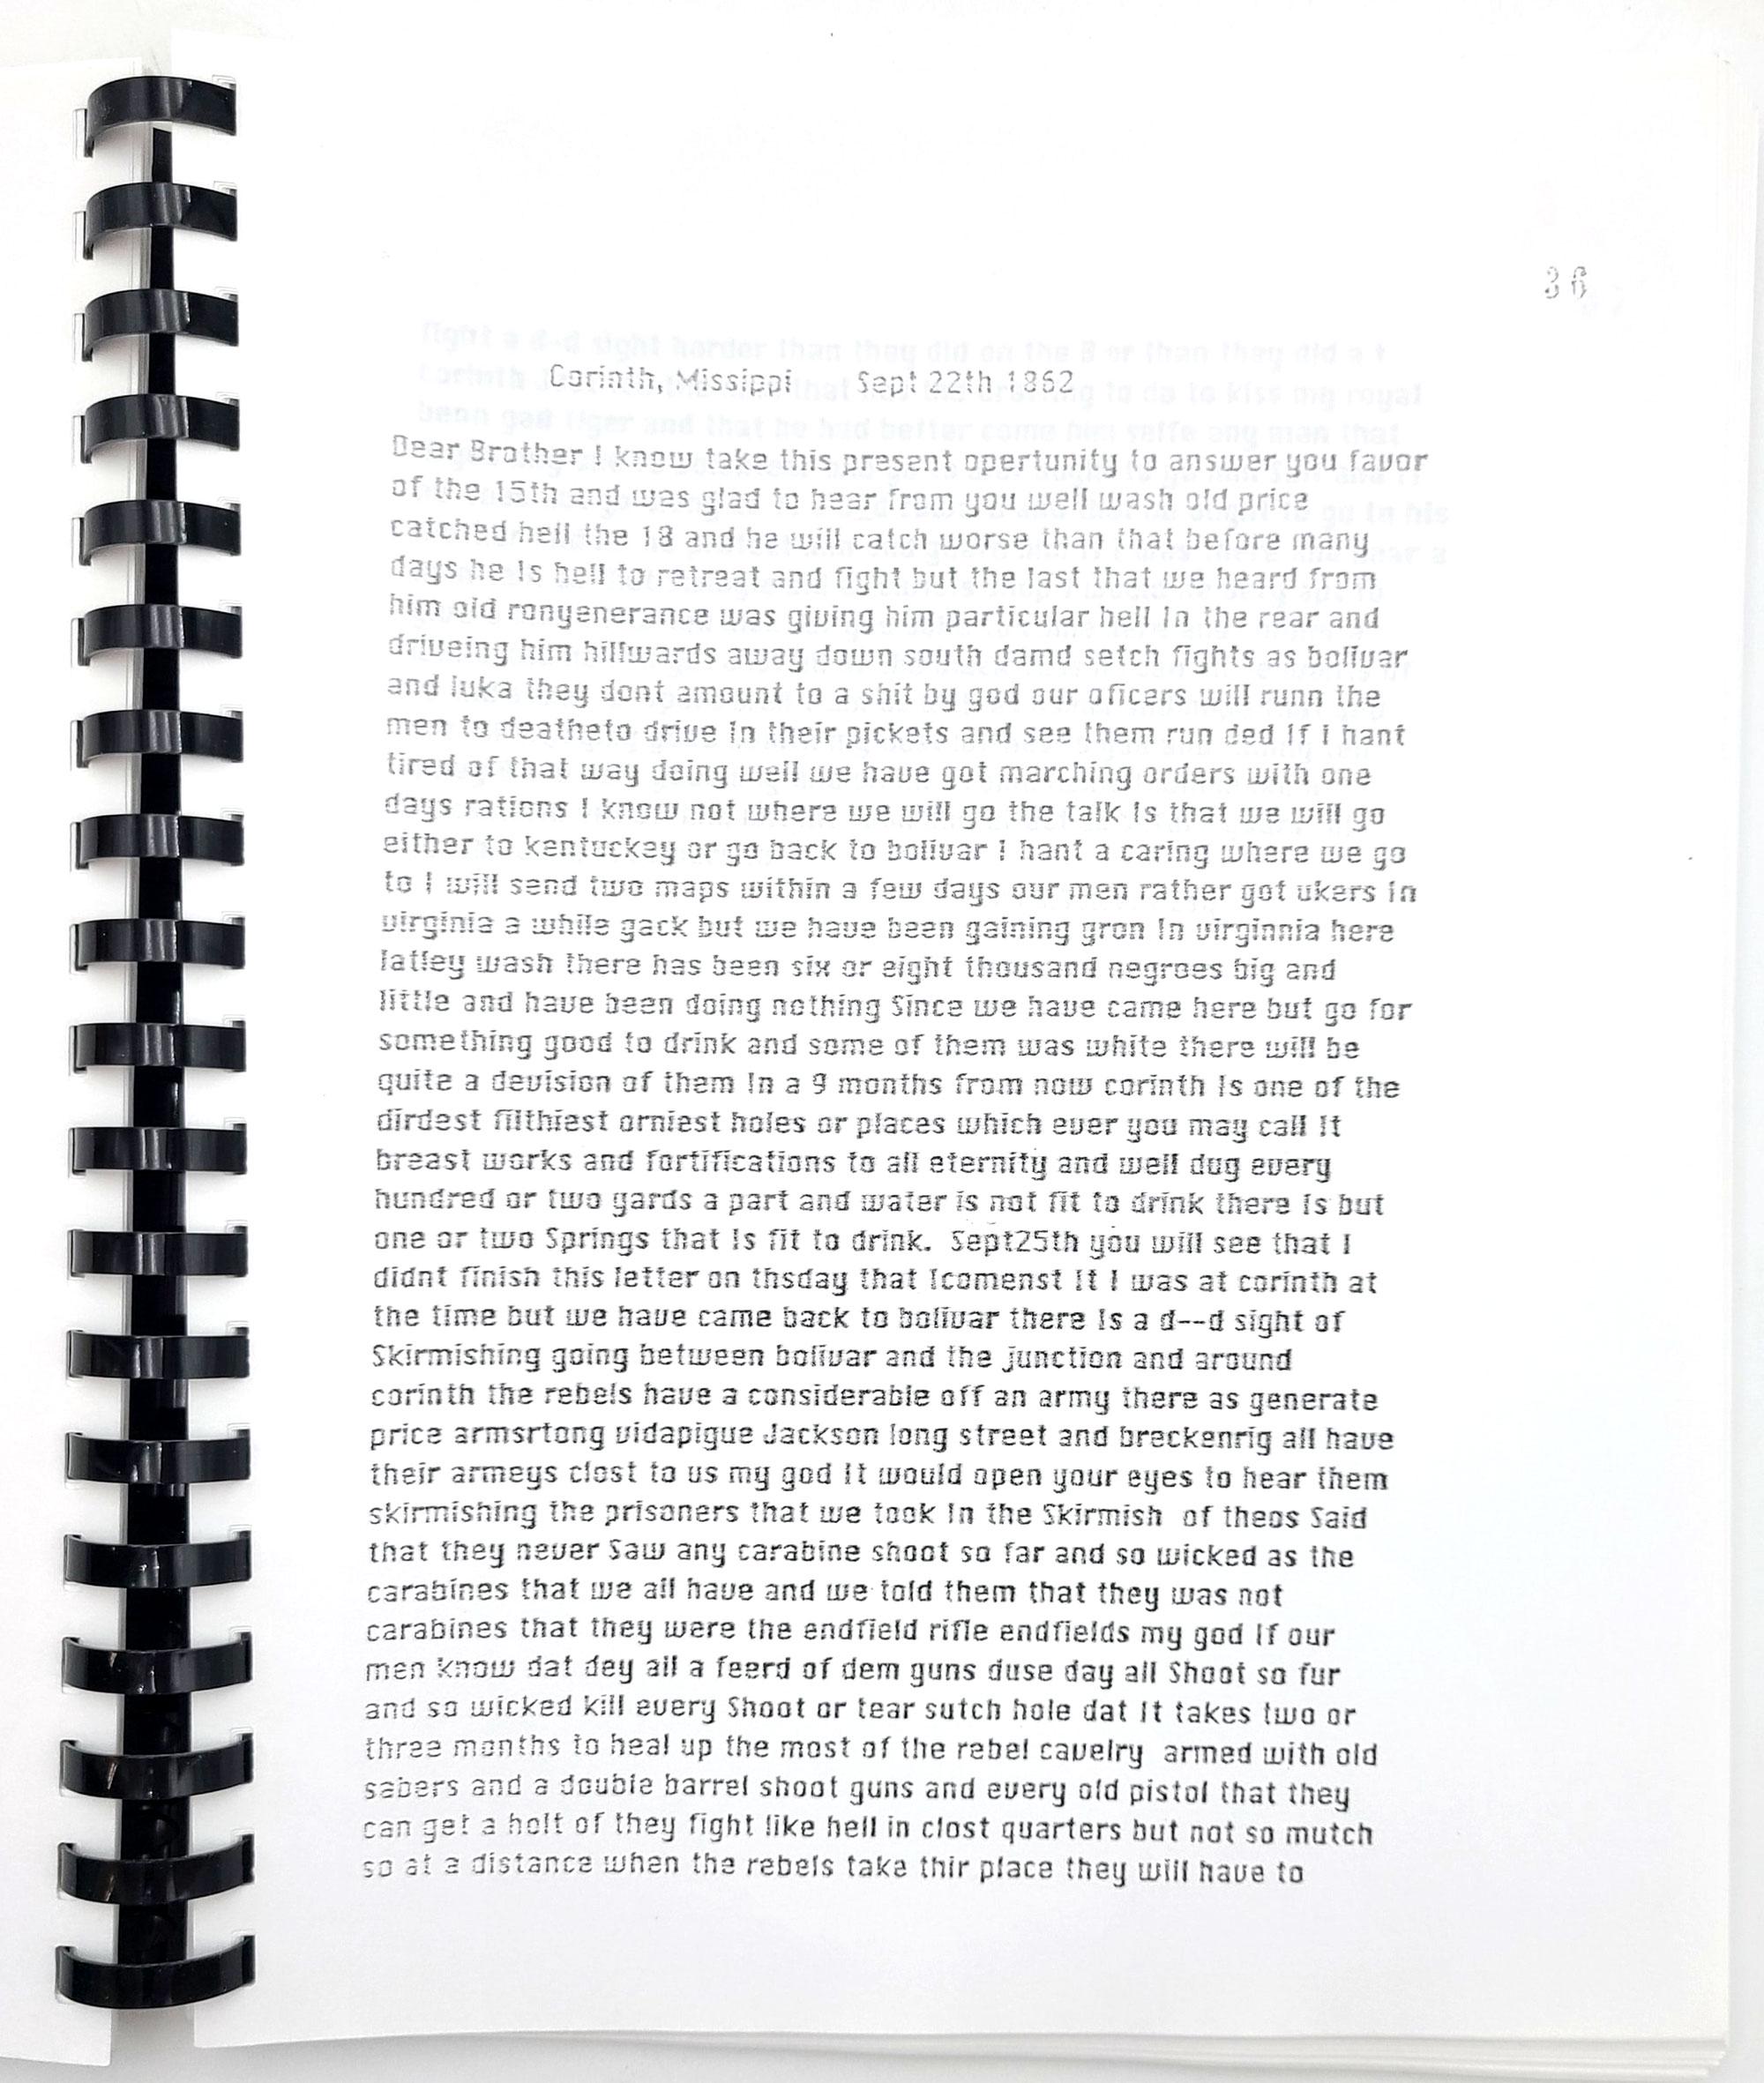 36
Corinth, Missippi Sept 22th 1862
Dear Brother I know take this present opertunity to answer you favor
of the 15th and was glad to hear from you well wash old price
catched hell the 18 and he will catch worse than that before many
days he Is hell to retreat and fight but the last that we heard from
him old ronyenerance was giving him particular hell In the rear and
driveing him hillwards away down south damd setch fights as bolivar
and Iuka they dont amount to a shit by god our oficers will runn the
men to deatheto drive In their pickets and see them run ded If I hant
tired of that way doing well we have got marching orders with one
days rations I know not where we will go the talk Is that we will go
either to kentuckey or go back to bolivar I hant a caring where we go
to I will send two maps within a few days our men rather got ukers In
virginia a while gack but we have been gaining gron In virginnia here
latley wash there has been six or eight thousand negroes big and
little and have been doing nothing Since we have came here but go for
something good to drink and some of them was white there will be
quite a devision of them In a 9 months from now corinth Is one of the
dirdest filthiest orniest holes or places which ever you may call It
breast works and fortifications to all eternity and well dug every
hundred or two gards a part and water is not fit to drink there Is but
one or two Springs that Is fit to drink. Sept25th you will see that I
didnt finish this letter on thsday that Icomenst It I was at corinth at
the time but we have came back to bolivar there Is a d--d sight of
Skirmishing going between bolivar and the junction and around
corinth the rebels have a considerable off an army there as generate
price armsrtong vidapigue Jackson long street and breckenrig all have
their armeys clost to us my god It would open your eyes to hear them
skirmishing the prisoners that we took In the Skirmish of theos Said
that they never Saw any carabine shoot so far and so wicked as the
carabines that we all have and we told them that they was not
carabines that they were the endfield rifle endfields my god If our
men know dat dey all a feerd of dem guns duse day all Shoot so fur
and so wicked kill every Shoot or tear sutch hole dat It takes two or
three months to heal up the most of the rebel cavelry armed with old
sabers and a double barrel shoot guns and every old pistol that they
can get a holt of they fight like hell in clost quarters but not so mutch
so at a distance when the rebels take thir place they will have to